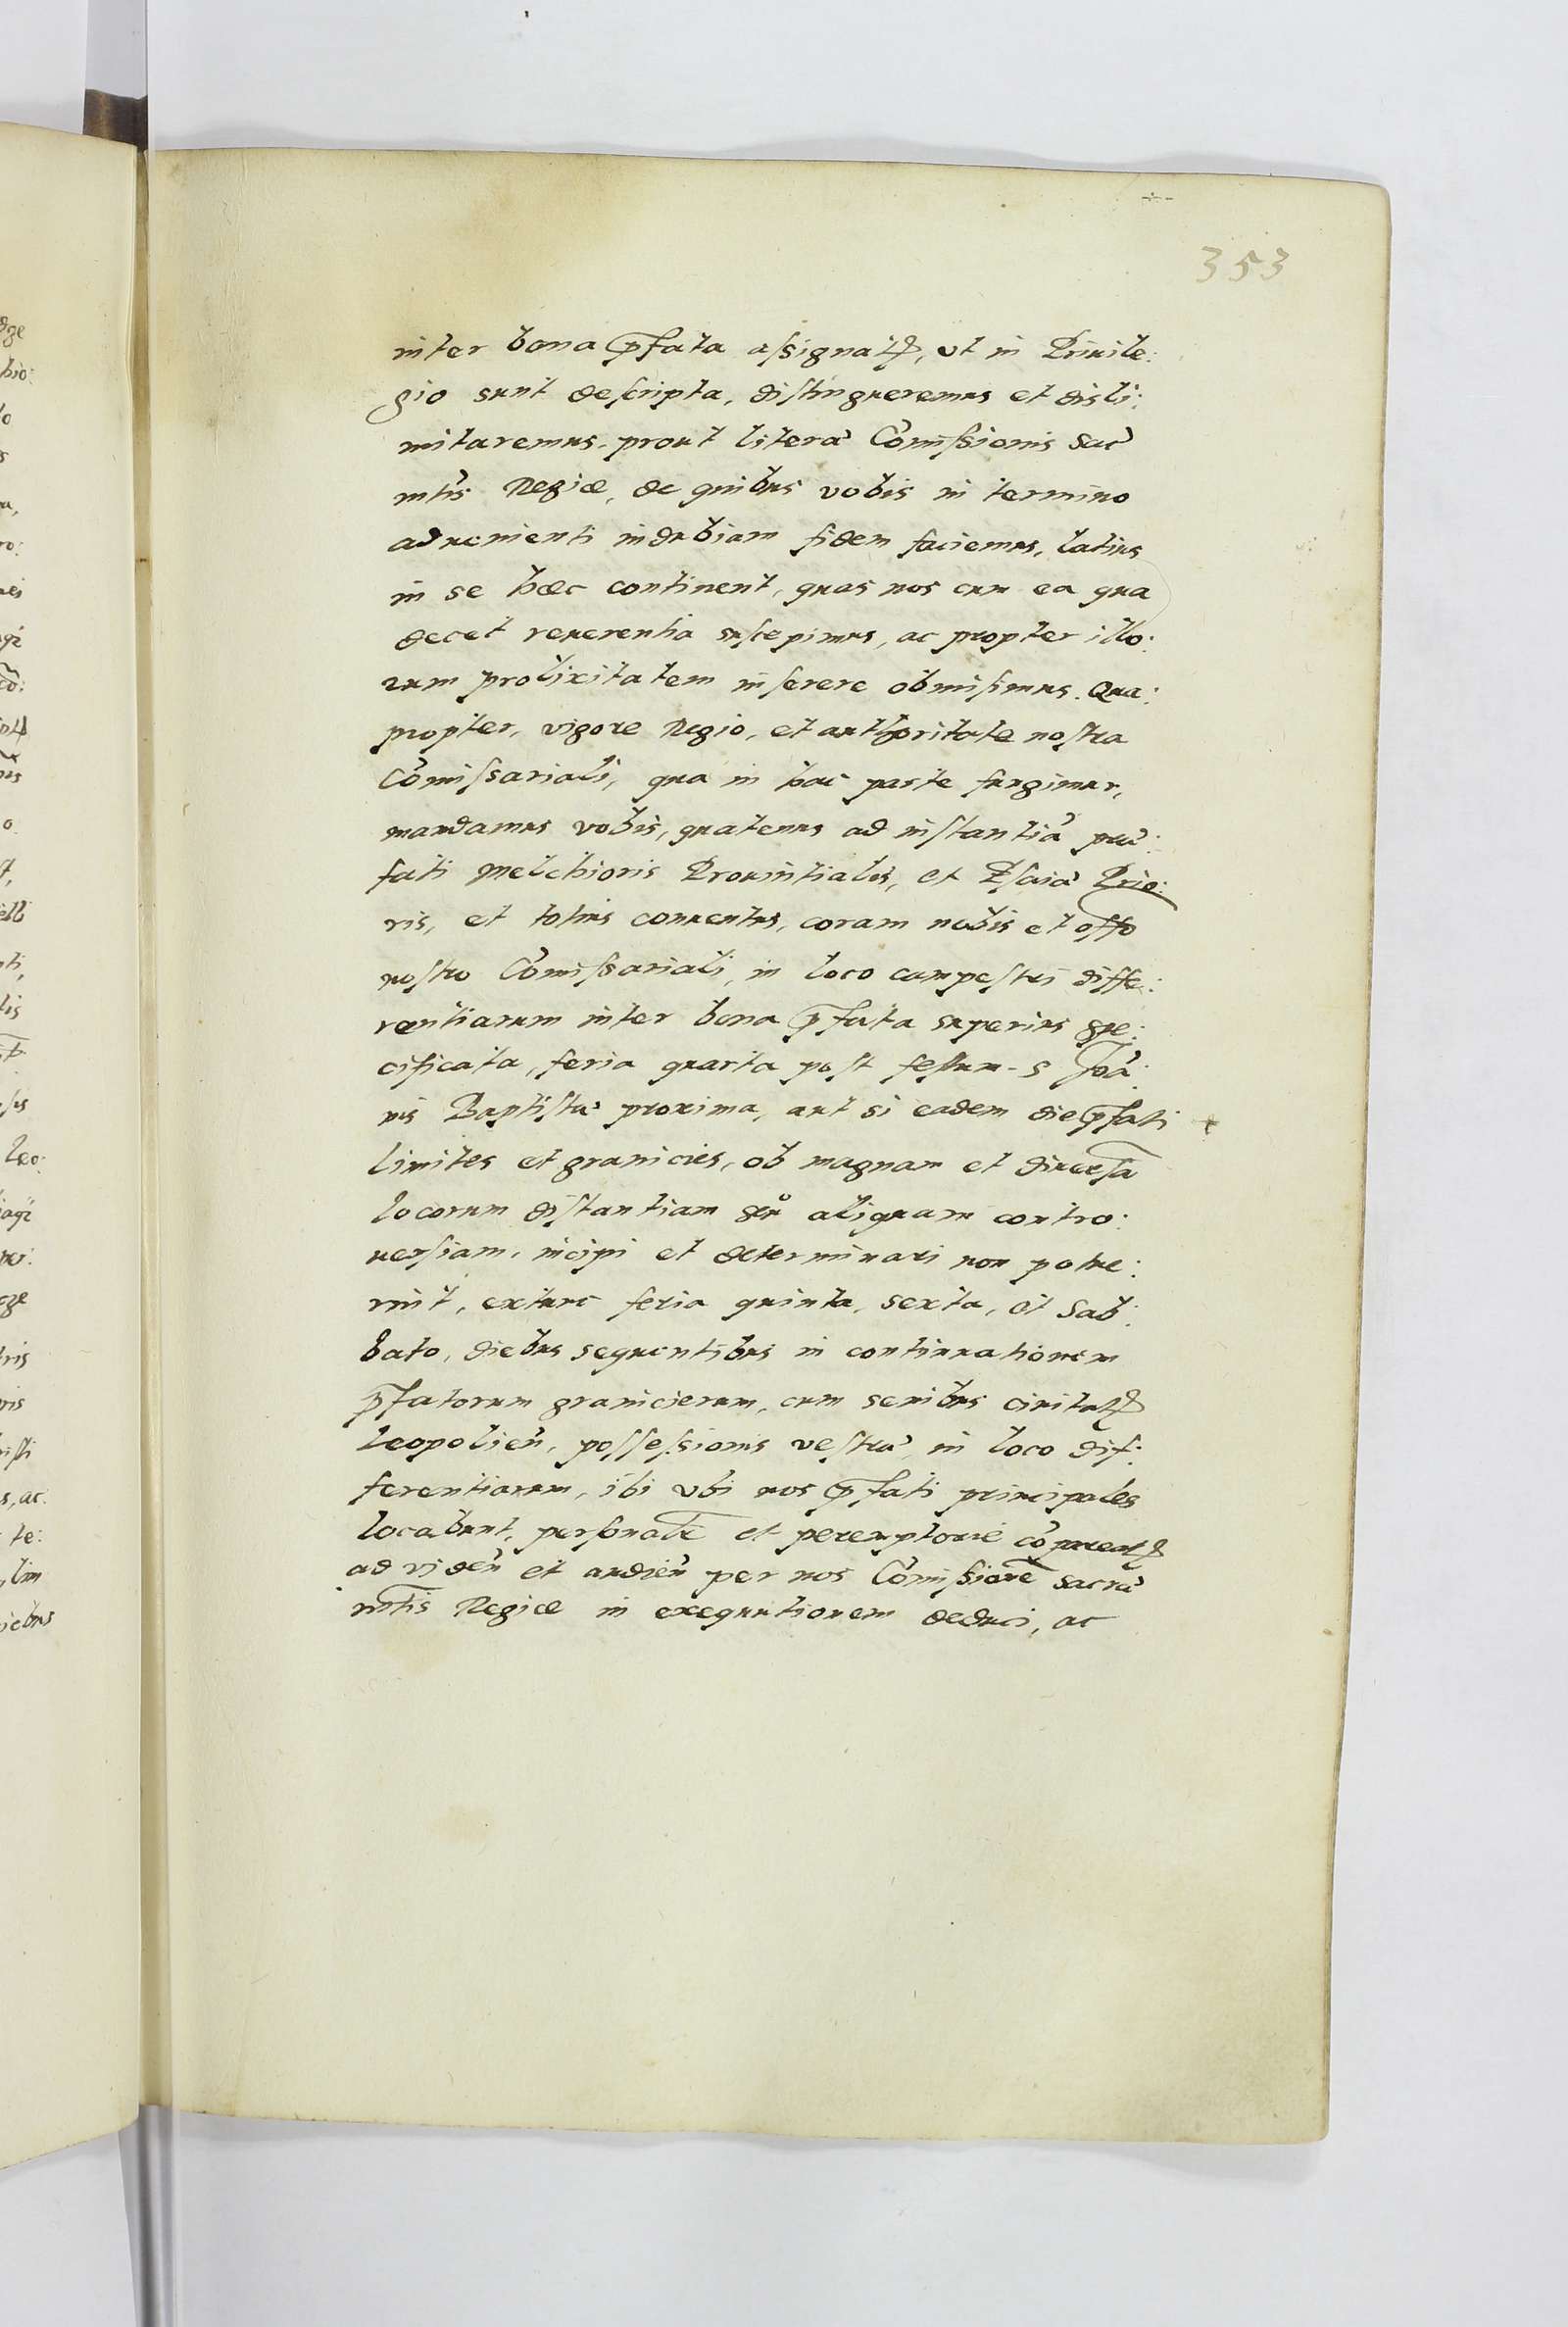 353
inter bona p̄fata aſsignatꝭ, vt in Priuile:
gio sunt deſcripta, diſtingueremus et disli:
mitaremus, prout literæ Com̃iſsionis Sacræ
mt̃is Regiæ, de quibus vobis in termino
aduenienti indubiam fidem faciemus, latius
in se hæc continent, quas nos cum ea qua
decet reuerentia suſcepimus, ac propter illo:
rum prolixitatem inſerere obmiſimus. Qua:
propter, vigore Regio, et authoritate noſtra
Com̃iſsariali, qua in hac parte fungimur,
mandamus vobis, quatenus ad inſtantiã præ:
fati Melchioris Prouintialis, et Eſaiæ Prio:
ris, et totius conuentus, coram nobis et offõ
noſtro Com̃iſsariali, in loco campeſtri diffe:
rentiarum inter bona p̄fata superius spe:
cificata, feria quarta poſt feſtum S Joã:
nis Baptiſtæ proxima, aut si eadem die p̄fati
limites et granicies, ob magnam et diuerſã
locorum diſtantiam seu aliquam contro:
uerſiam, incipi et determinari non potue:
rint, extunc feria quinta, sexta, et Sab:
bato, diebus sequentibus in continuationem
p̄fatorum granicierum, cum senibus ciuitatꝭ
Leopolien̄, poſſeſsionis veſtræ, in loco dif:
ferentiarum, ibi vbi nos p̄fati principales
locabunt, perſonalr̃ et peremptorie cõpareatꝭ
ad viden̄ et audien̄ per nos Com̃iſsionẽ sacræ
mt̃is Regiæ in exequutionem deduci, ac